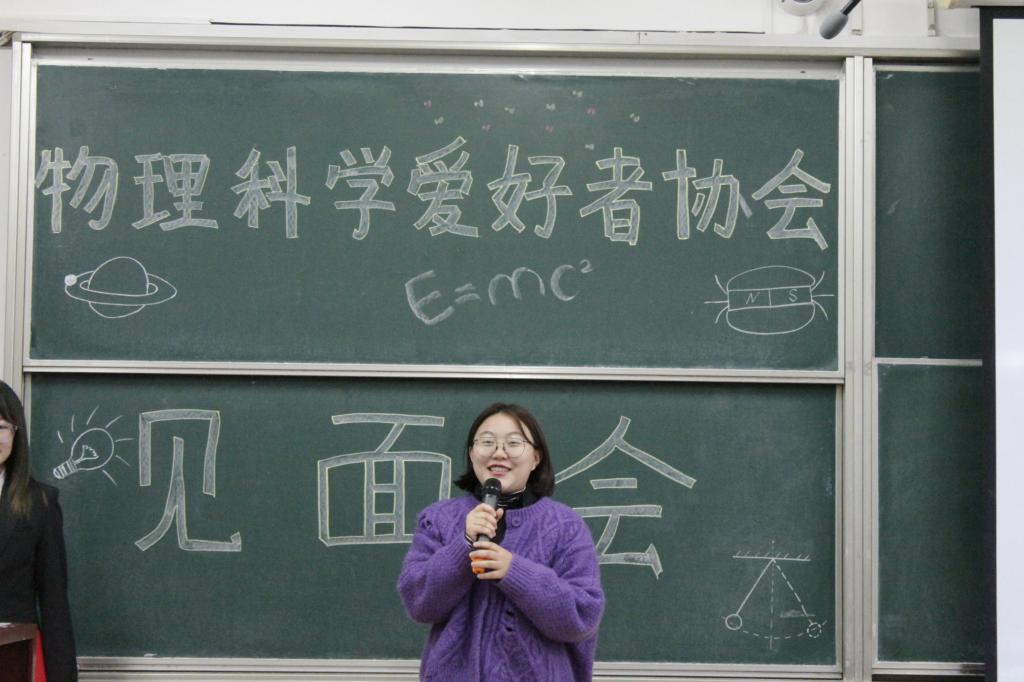 物理科学爱好者协会
E=mc²
N S
见面会